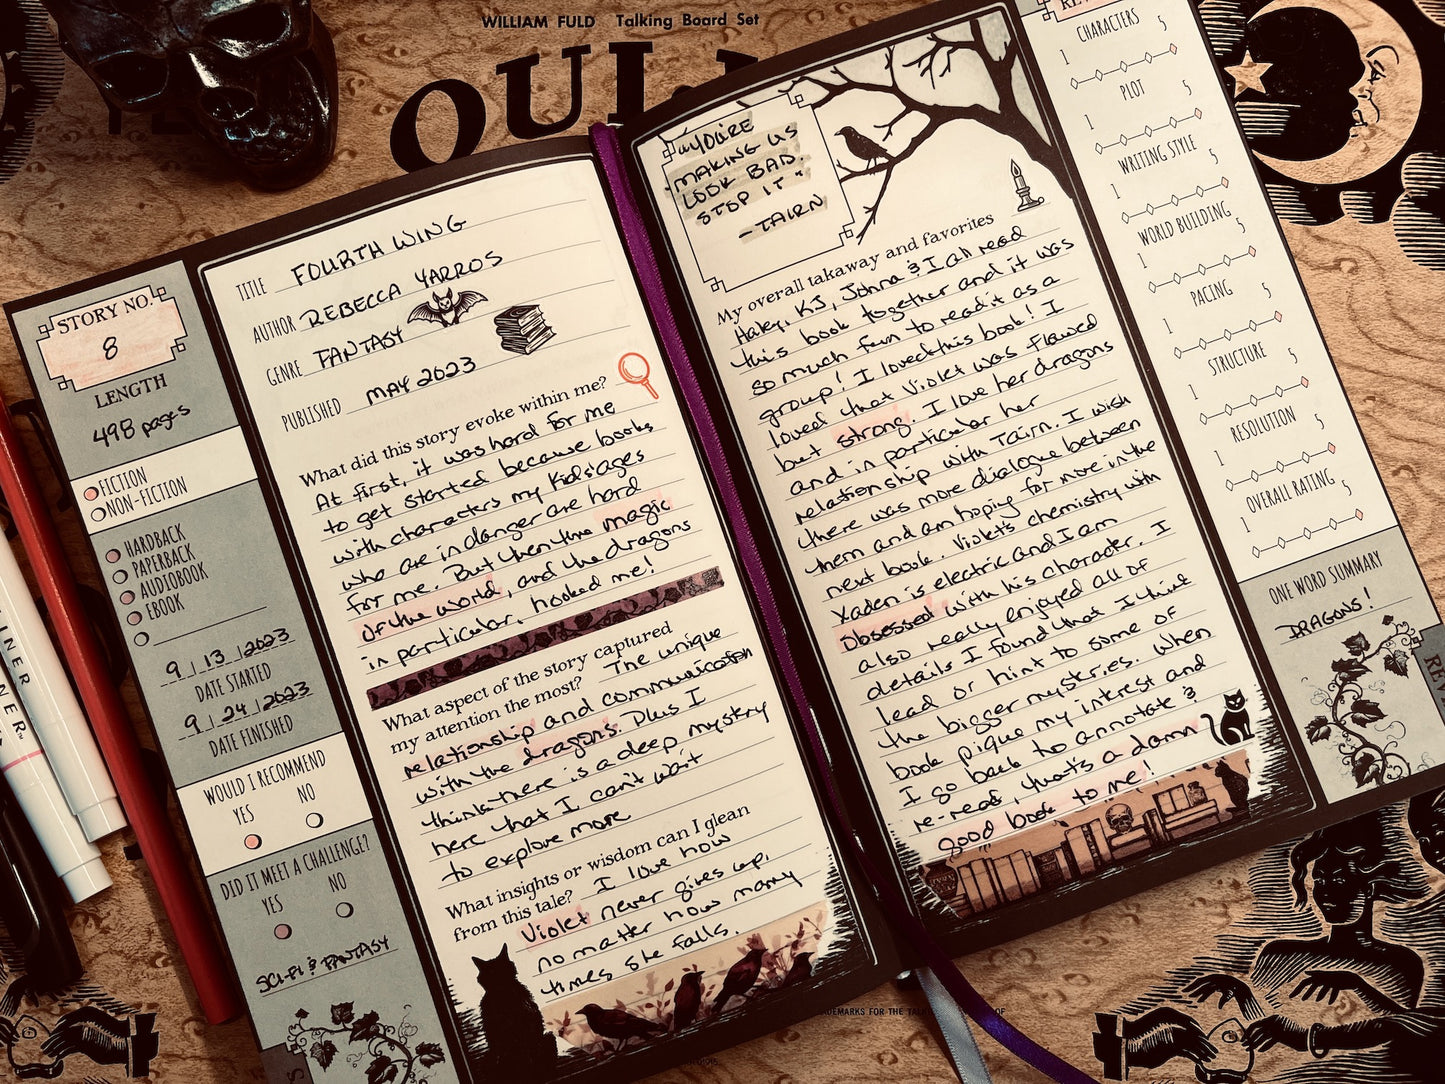 WILLIAM FULD Talking Board Set
OUIJ
STORY NO.
8
LENGTH
498 pages
FICTION
NON-FICTION
HARDBACK
PAPERBACK
AUDIOBOOK
EBOOK
9 | 13 | 2023
DATE STARTED
9 | 24 | 2023
DATE FINISHED
WOULD I RECOMMEND
YES NO
DID IT MEET A CHALLENGE?
YES NO
SCI-FI & FANTASY
TITLE FOURTH WING
AUTHOR REBECCA YARROS
GENRE FANTASY
PUBLISHED MAY 2023
What did this story evoke within me?
At first, it was hard for me
to get started because books
with characters my kids' ages
who are in danger are hard
for me. But then the magic
of the world, and the dragons
in particular, hooked me!
What aspect of the story captured
my attention the most? The unique
relationship and communication
with the dragons. Plus I
think there is a deep mystery
here that I can't wait
to explore more
What insights or wisdom can I glean
from this tale? I love how
Violet never gives up,
no matter how many
times she falls.
"YOU'RE
MAKING US
LOOK BAD.
STOP IT"
-TAIRN
My overall takaway and favorites
Haley, KJ, Johna & I all read
this book together and it was
so much fun to read it as a
group! I loved this book! I
loved that Violet was flawed
but strong. I love her dragons
and in particular her
relationship with Tairn. I wish
there was more dialogue between
them and am hoping for more in the
next book. Violet's chemistry with
Xaden is electric and I am
obsessed with his character. I
also really enjoyed all of
details I found that I think
lead or hint to some of
the bigger mysteries. When
book pique my interest and
I go back to annotate &
re-read, that's a damn
good book to me!
CHARACTERS
1 5
PLOT
1 5
WRITING STYLE
1 5
WORLD BUILDING
1 5
PACING
1 5
STRUCTURE
1 5
RESOLUTION
1 5
OVERALL RATING
1 5
ONE WORD SUMMARY
DRAGONS!